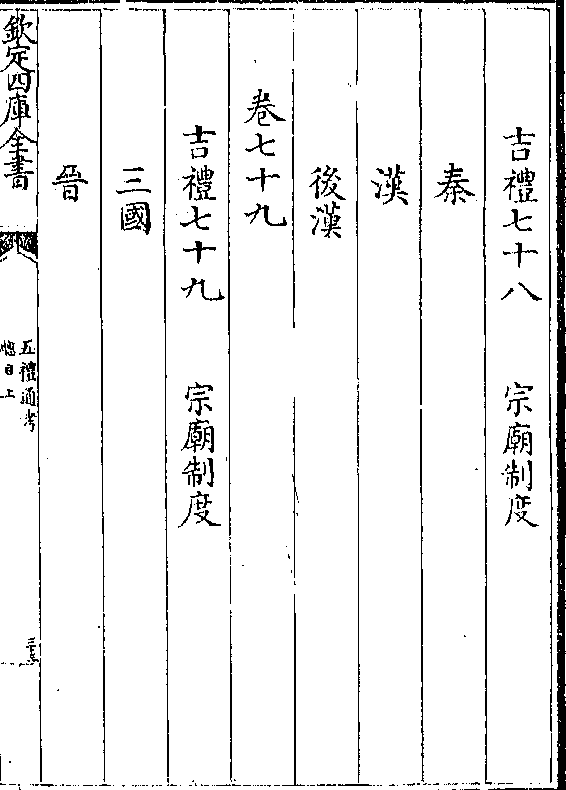 吉禮七十八　宗廟制度
秦
漢
後漢
卷七十九
吉禮七十九　宗廟制度
三國
晉
欽定四庫全書
五禮通考
總目上